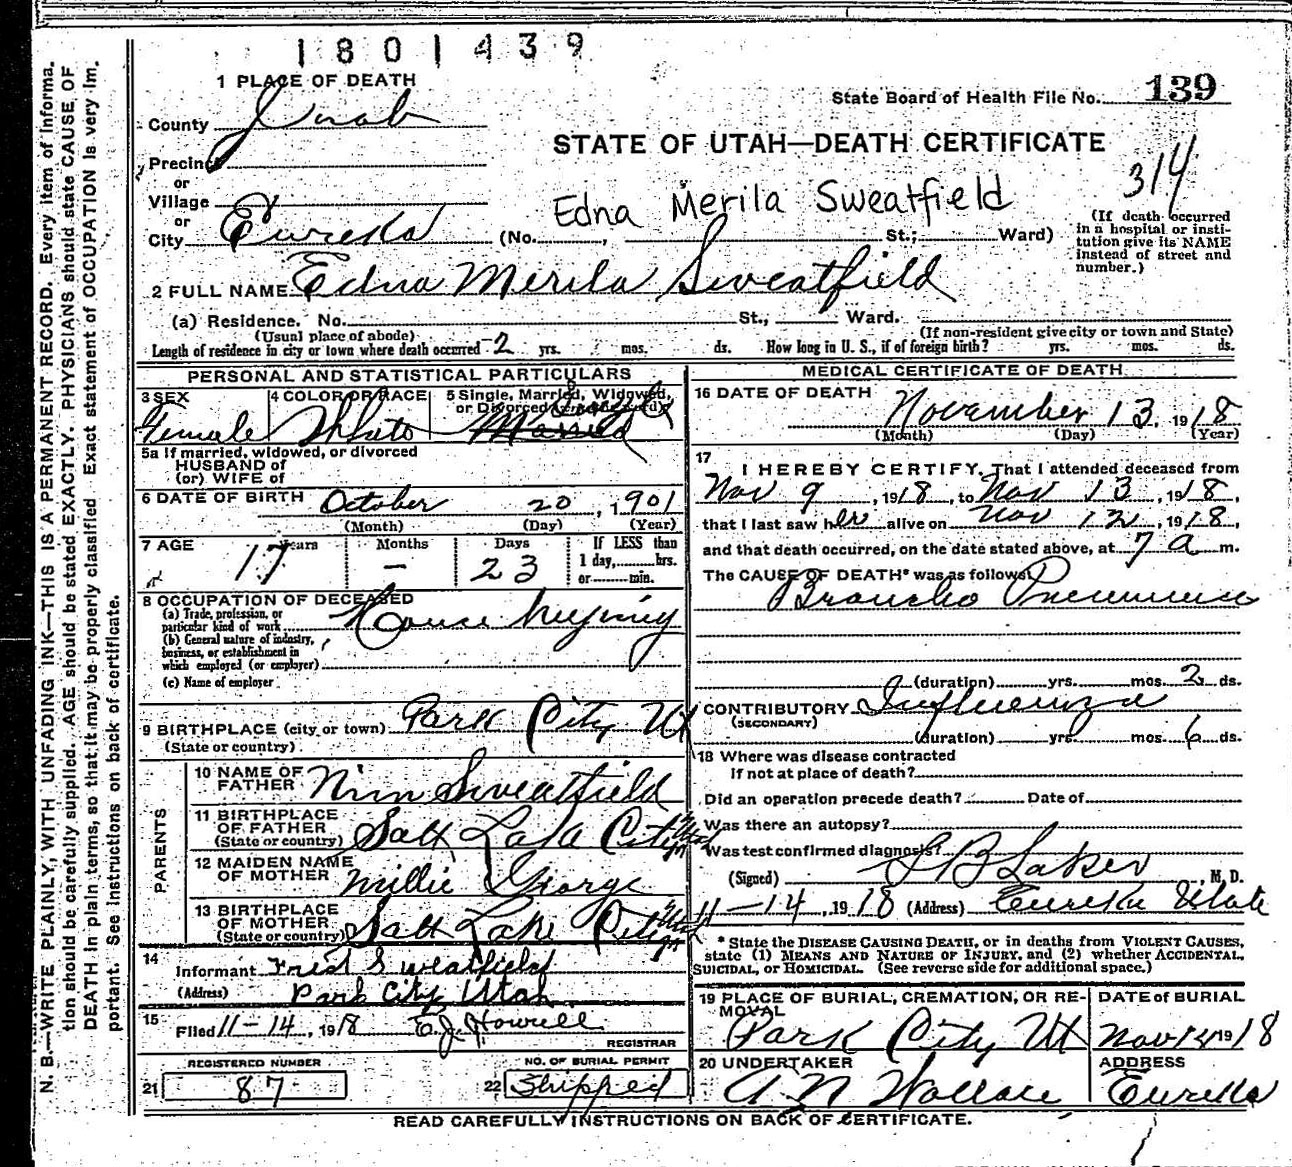 1801439
1 PLACE OF DEATH
State Board of Health File No. 139
County Juab
STATE OF UTAH—DEATH CERTIFICATE
314
Precinct
or
Village
or
City Eureka
Edna Merila Sweatfield
(No. , St.; Ward)
(If death occurred
in a hospital or insti-
tution give its NAME
instead of street and
number.)
2 FULL NAME Edna Merila Sweatfield
(a) Residence. No. St., Ward.
(Usual place of abode)
(If non-resident give city or town and State)
Length of residence in city or town where death occurred 2 yrs. mos. ds. How long in U. S., if of foreign birth? yrs. mos. ds.
PERSONAL AND STATISTICAL PARTICULARS
3 SEX
Female
4 COLOR OR RACE
White
5 Single, Married, Widowed,
or Divorced (write the word)
Single
Married
5a If married, widowed, or divorced
HUSBAND of
(or) WIFE of
6 DATE OF BIRTH October 20, 1901
(Month) (Day) (Year)
7 AGE Years Months Days If LESS than
17 — 23 1 day, hrs.
or min.
8 OCCUPATION OF DECEASED
(a) Trade, profession, or
particular kind of work House keeping
(b) General nature of industry,
business, or establishment in
which employed (or employer)
(c) Name of employer
9 BIRTHPLACE (city or town) Park City Ut
(State or country)
PARENTS
10 NAME OF
FATHER Nim Sweatfield
11 BIRTHPLACE
OF FATHER
(State or country) Salt Lake City Utah
12 MAIDEN NAME
OF MOTHER Millie George
13 BIRTHPLACE
OF MOTHER
(State or country) Salt Lake City Utah
14
Informant Fred Sweatfield
(Address) Park City Utah
15
Filed 11-14, 1918 E.J. Howell
REGISTRAR
REGISTERED NUMBER
21 87
NO. OF BURIAL PERMIT
22 Shipped
MEDICAL CERTIFICATE OF DEATH
16 DATE OF DEATH
November 13, 1918
(Month) (Day) (Year)
17
I HEREBY CERTIFY, That I attended deceased from
Nov 9, 1918, to Nov 13, 1918,
that I last saw her alive on Nov 12, 1918,
and that death occurred, on the date stated above, at 7 a m.
The CAUSE OF DEATH* was as follows:
Broncho Pneumonia
(duration) yrs. mos. 2 ds.
CONTRIBUTORY Influenza
(SECONDARY)
(duration) yrs. mos. 6 ds.
18 Where was disease contracted
If not at place of death?
Did an operation precede death? Date of
Was there an autopsy?
Was test confirmed diagnosis?
(Signed) , M. D.
11-14, 1918 (Address) Eureka Utah
* State the DISEASE CAUSING DEATH, or in deaths from VIOLENT CAUSES,
state (1) MEANS AND NATURE OF INJURY, and (2) whether ACCIDENTAL,
SUICIDAL, or HOMICIDAL. (See reverse side for additional space.)
19 PLACE OF BURIAL, CREMATION, OR RE-
MOVAL
Park City Ut
DATE of BURIAL
Nov 14 1918
20 UNDERTAKER
A N Wallace
ADDRESS
Eureka
READ CAREFULLY INSTRUCTIONS ON BACK OF CERTIFICATE.
N. B.—WRITE PLAINLY, WITH UNFADING INK—THIS IS A PERMANENT RECORD. Every item of informa-
tion should be carefully supplied. AGE should be stated EXACTLY. PHYSICIANS should state CAUSE OF
DEATH in plain terms, so that it may be properly classified. Exact statement of OCCUPATION is very im-
portant. See instructions on back of certificate.